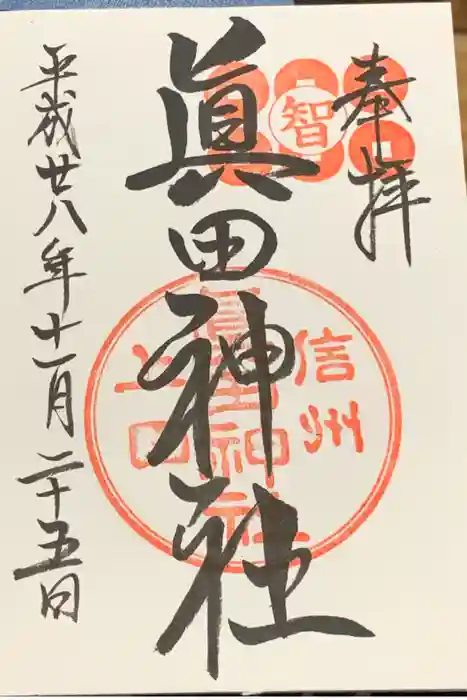 奉拝
智
眞田神社
信州
眞田神社
上田
平成廿八年十一月二十五日